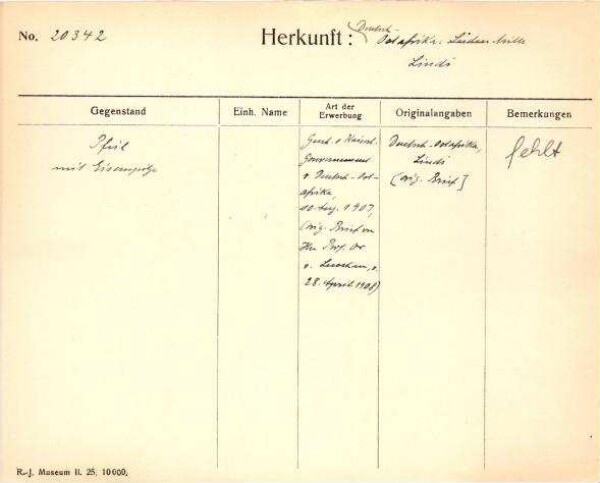 No. 20342
Herkunft: Deutsch-
Ostafrika: Süden Mitte
Lindi
Gegenstand
Einh. Name
Art der
Erwerbung
Originalangaben
Bemerkungen
Pfeil
mit Eisenspitze
Gesch. v. Kaiserl.
Gouvernement
v. Deutsch-Ost-
afrika,
1907,
(orig. Brief von
Hrn Prof. Dr
v. Luschan, v.
28. April 1908)
Deutsch-Ostafrika,
Lindi
(orig. Brief]
fehlt
R.-J. Museum II. 25. 10000.